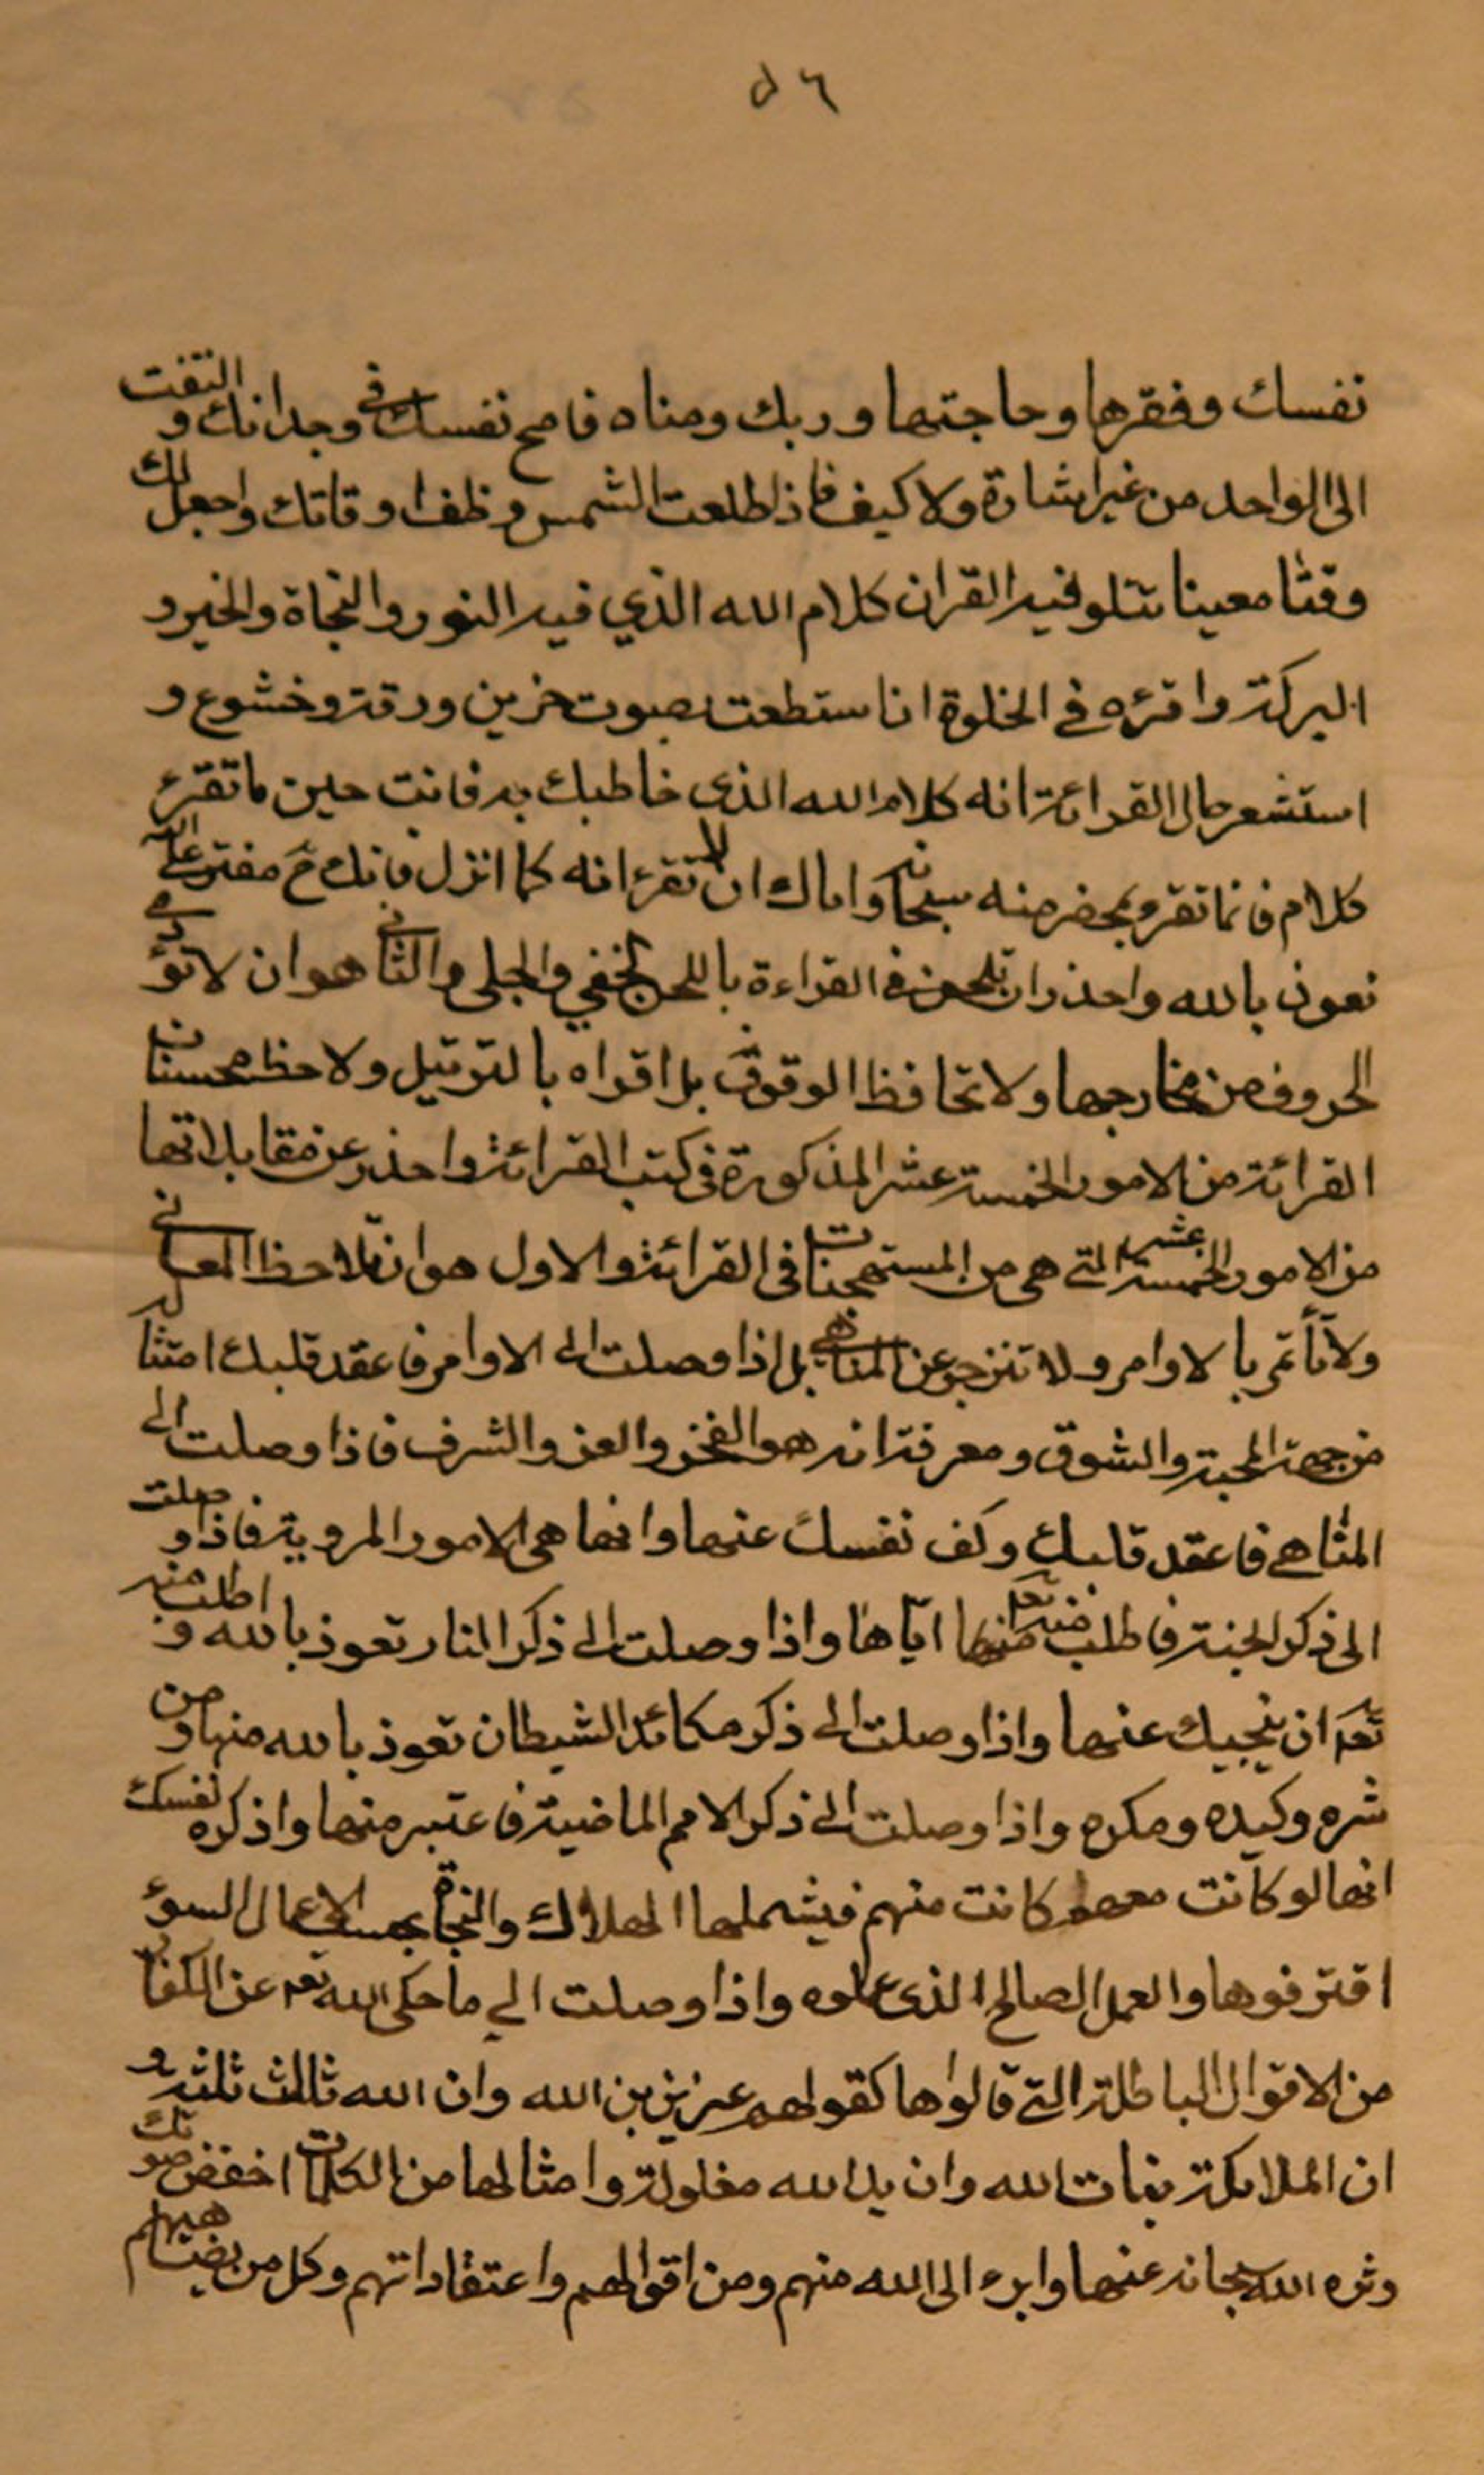 ٥٦
نفسك وفقرها وحاجتها وربك ومناه فامح نفسك في وجدانك والتفت
الى الواحد من غير اشارة ولا كيف فاذا طلعت الشمس وظف اوقاتك واجعل لك
وقتا معينا تتلو فيه القران كلام الله الذي فيه النور والنجاة والخير و
البركة واقرئه في الخلوة ان استطعت بصوت حزين ورقة وخشوع و
استشعر حال القرائة انه كلام الله الذي خاطبك به فانت حين ما تقرء
كلام فانما تقرء بمحضر منه سبحانه واياك ان لا تقرء انه كما انزل فانك ح مفتر على الله
نعوذ بالله واحذر ان تلحن في القراءة باللحن الخفي والجلي والثاني هو ان لا تؤدي
الحروف من مخارجها ولا تحافظ الوقوف بل اقراه بالترتيل ولاحظ محسنات
القرائة من الامور الخمسة عشر المذكورة في كتب القرائة واحذر عن مقابلاتها
من الامور الخمسة عشر التي هي من المستهجنات في القرائة والاول هو ان لا تلاحظ المعاني
ولا تأتمر بالاوامر ولا تنزجر عن المناهي بل اذا وصلت الى الاوامر فاعقد قلبك امتثاله
من جهة المحبة والشوق ومعرفة انه هو الفخر والعز والشرف فاذا وصلت الى
المناهي فاعقد قلبك وكف نفسك عنها وانها هي الامور المردية فاذا وصلت
الى ذكر الجنة فاطلب منه تعا اياها واذا وصلت الى ذكر النار تعوذ بالله واطلب منه
تعا ان ينجيك عنها واذا وصلت الى ذكر مكائد الشيطان تعوذ بالله منها ومن
شره وكيده ومكره واذا وصلت الى ذكر الامم الماضية فاعتبر منها واذكره نفسك
انها لو كانت معهم كانت منهم فيشملها الهلاك والنجاة بحسب الاعمال السوء
اقترفوها والعمل الصالح الذي عملوه واذا وصلت الى ما حكى الله تعا عن الكفار
من الاقوال الباطلة التي قالوها كقولهم عزيز بن الله وان الله ثالث ثلثة و
ان الملائكة بنات الله وان يد الله مغلولة وامثالها من الكلمات اخفض صوتك
ونزه الله سبحانه عنها وابرء الى الله منهم ومن اقوالهم واعتقاداتهم وكل من يضاهيهم